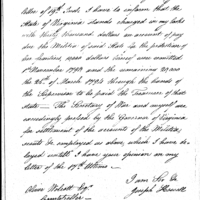 letter of 19th Inst. I have to inform that the
State of Virginia stands charged on my books
with thirty thousand dollars on account of pay
for the Militia of said State in the protection of
her frontiers
1st November 1792 and the remaining 20,000
the 6th of March 1793 through the hands of
the Supervisor to be paid the Treasurer of that
state — The Secretary of War and myself are
accordingly pressed by the Governor of Virginia
for settlement of the accounts of the Militia
employed as above, which I have de-
layed until I have your opinion on my
letter of the 17th Ultimo
I am Sir &c
Oliver Wolcott Esqr. Joseph Howell
Comptroller